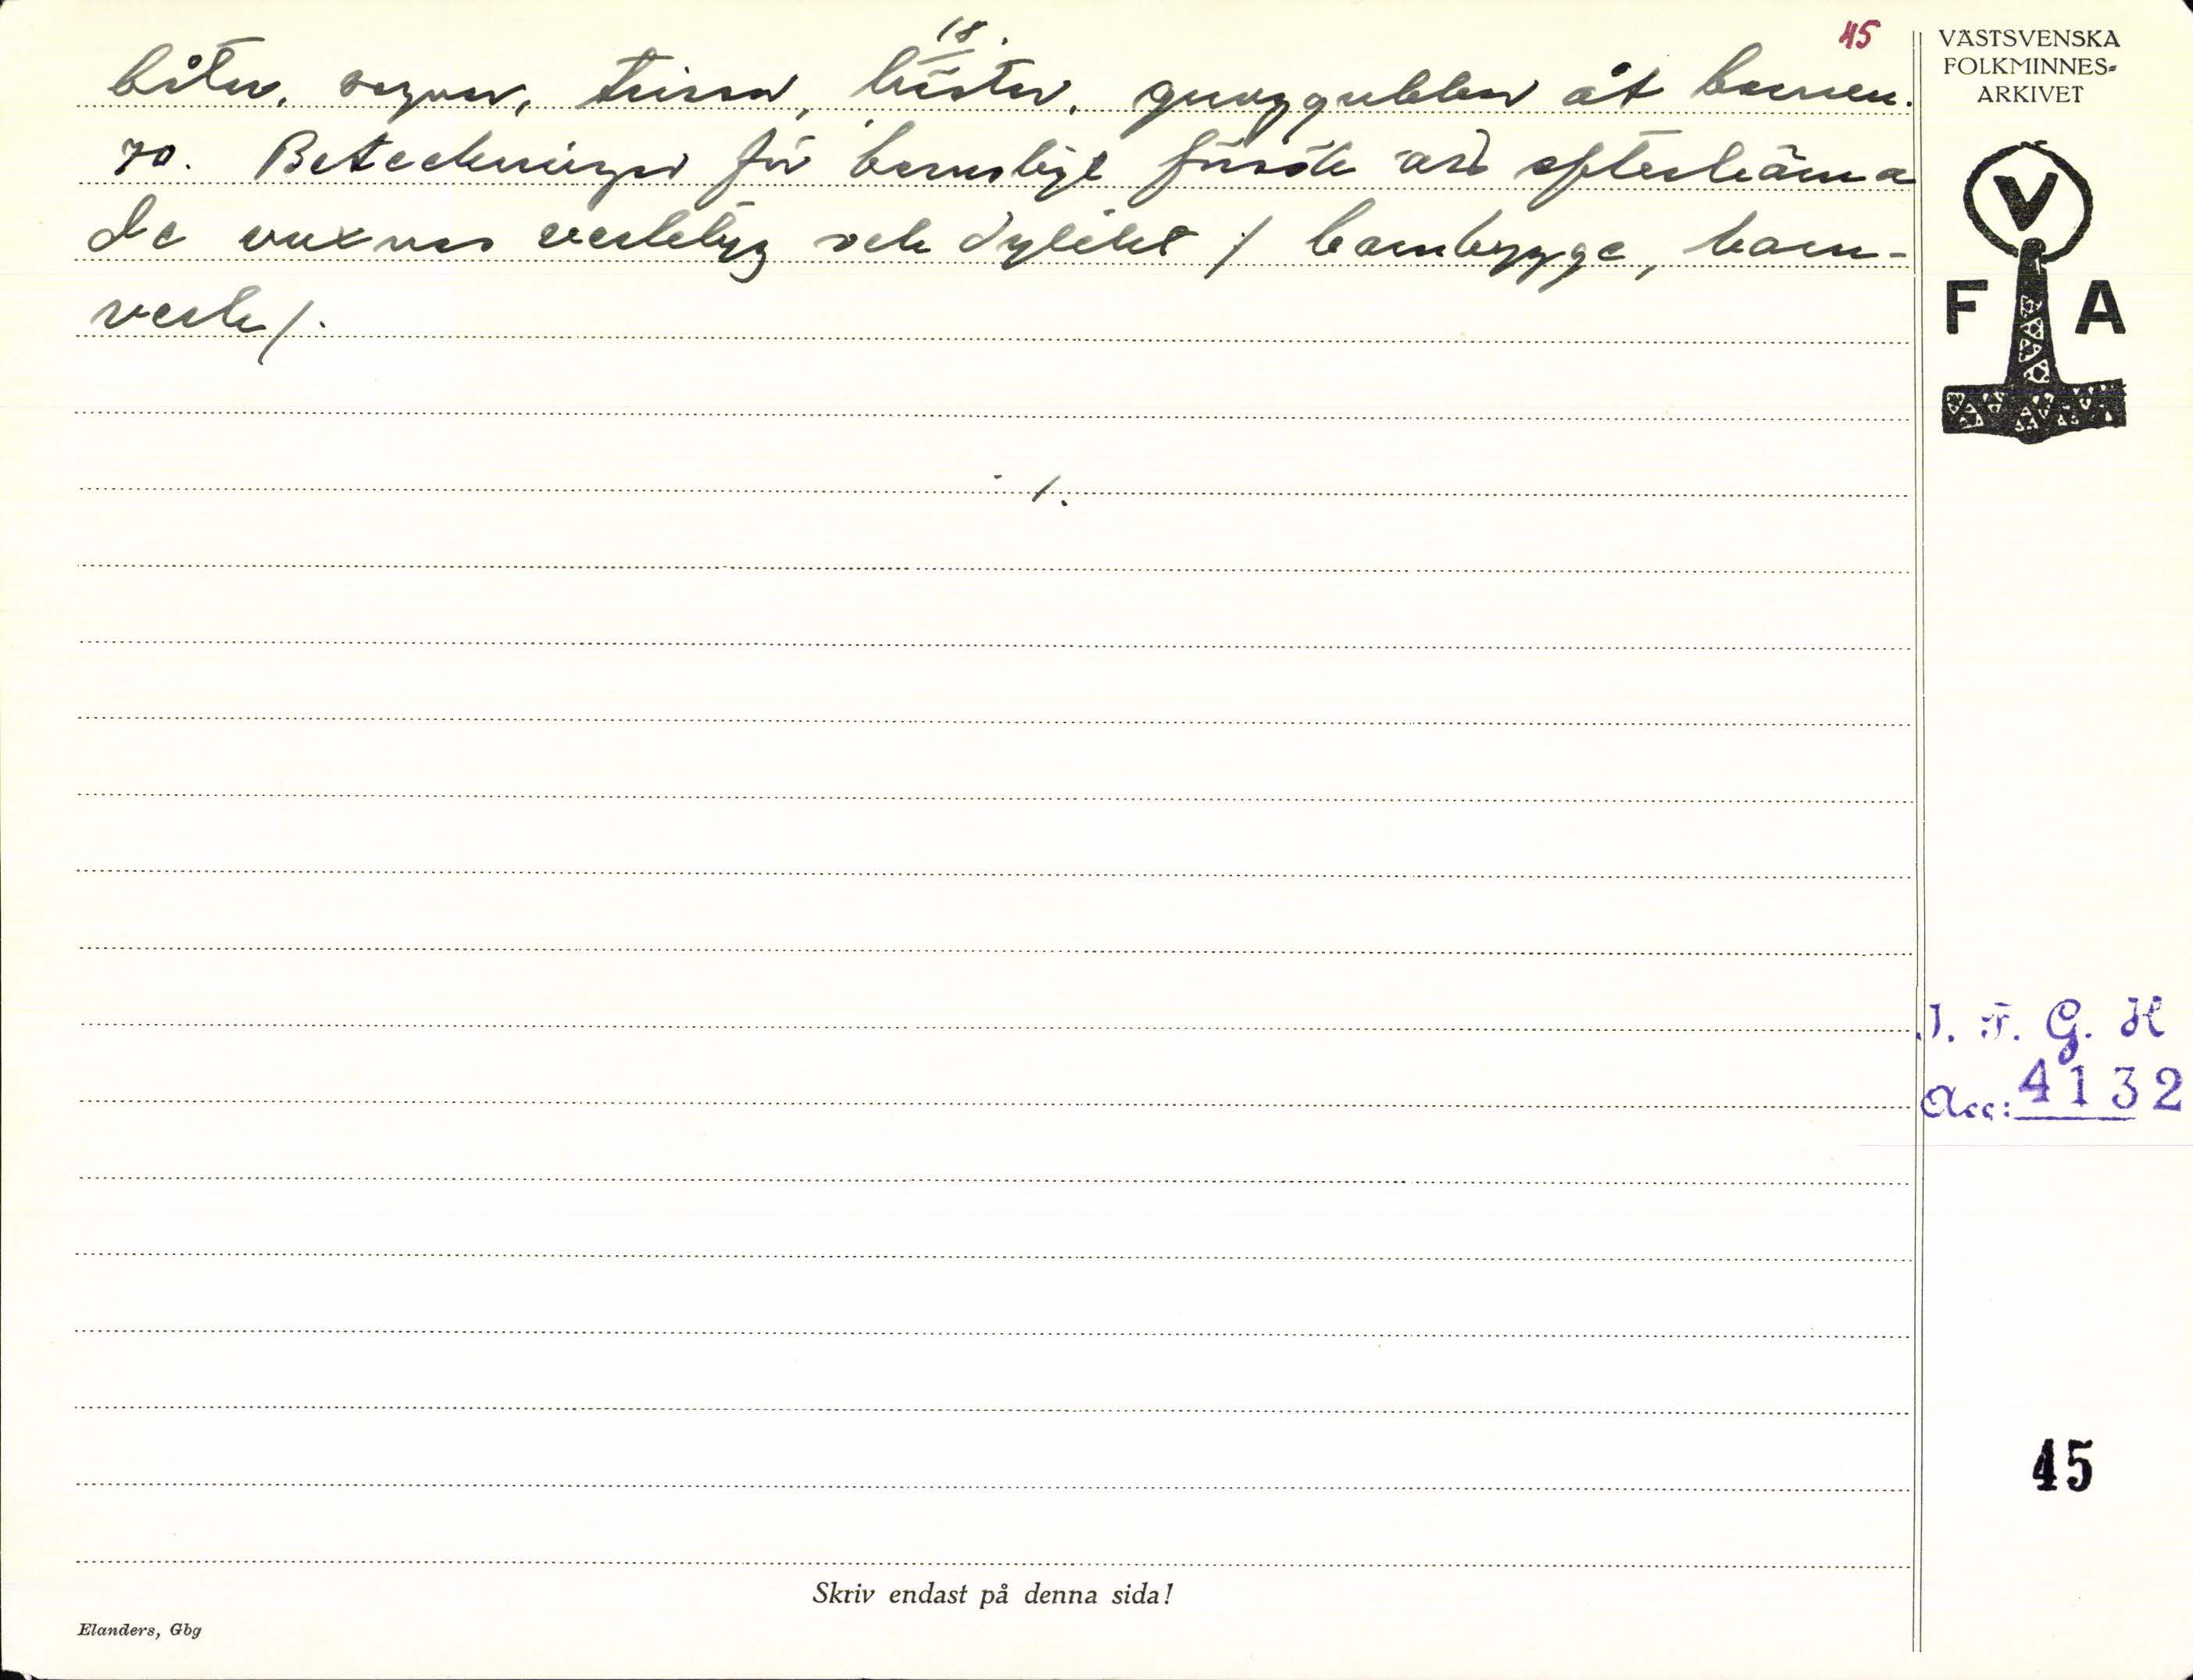 18.
45
båtar, vagnar, trissor, hästar, gunggubbar åt barnen.
70. Beteckningar för barnsligt försök att efterhärma
de vuxnas verktyg och dylikt / barnbygge, barn-
verk /.
/.
VÄSTSVENSKA
FOLKMINNES=
ARKIVET
V
F A
I. F. G. H
Acc: 4132
45
Skriv endast på denna sida!
Elanders, Gbg